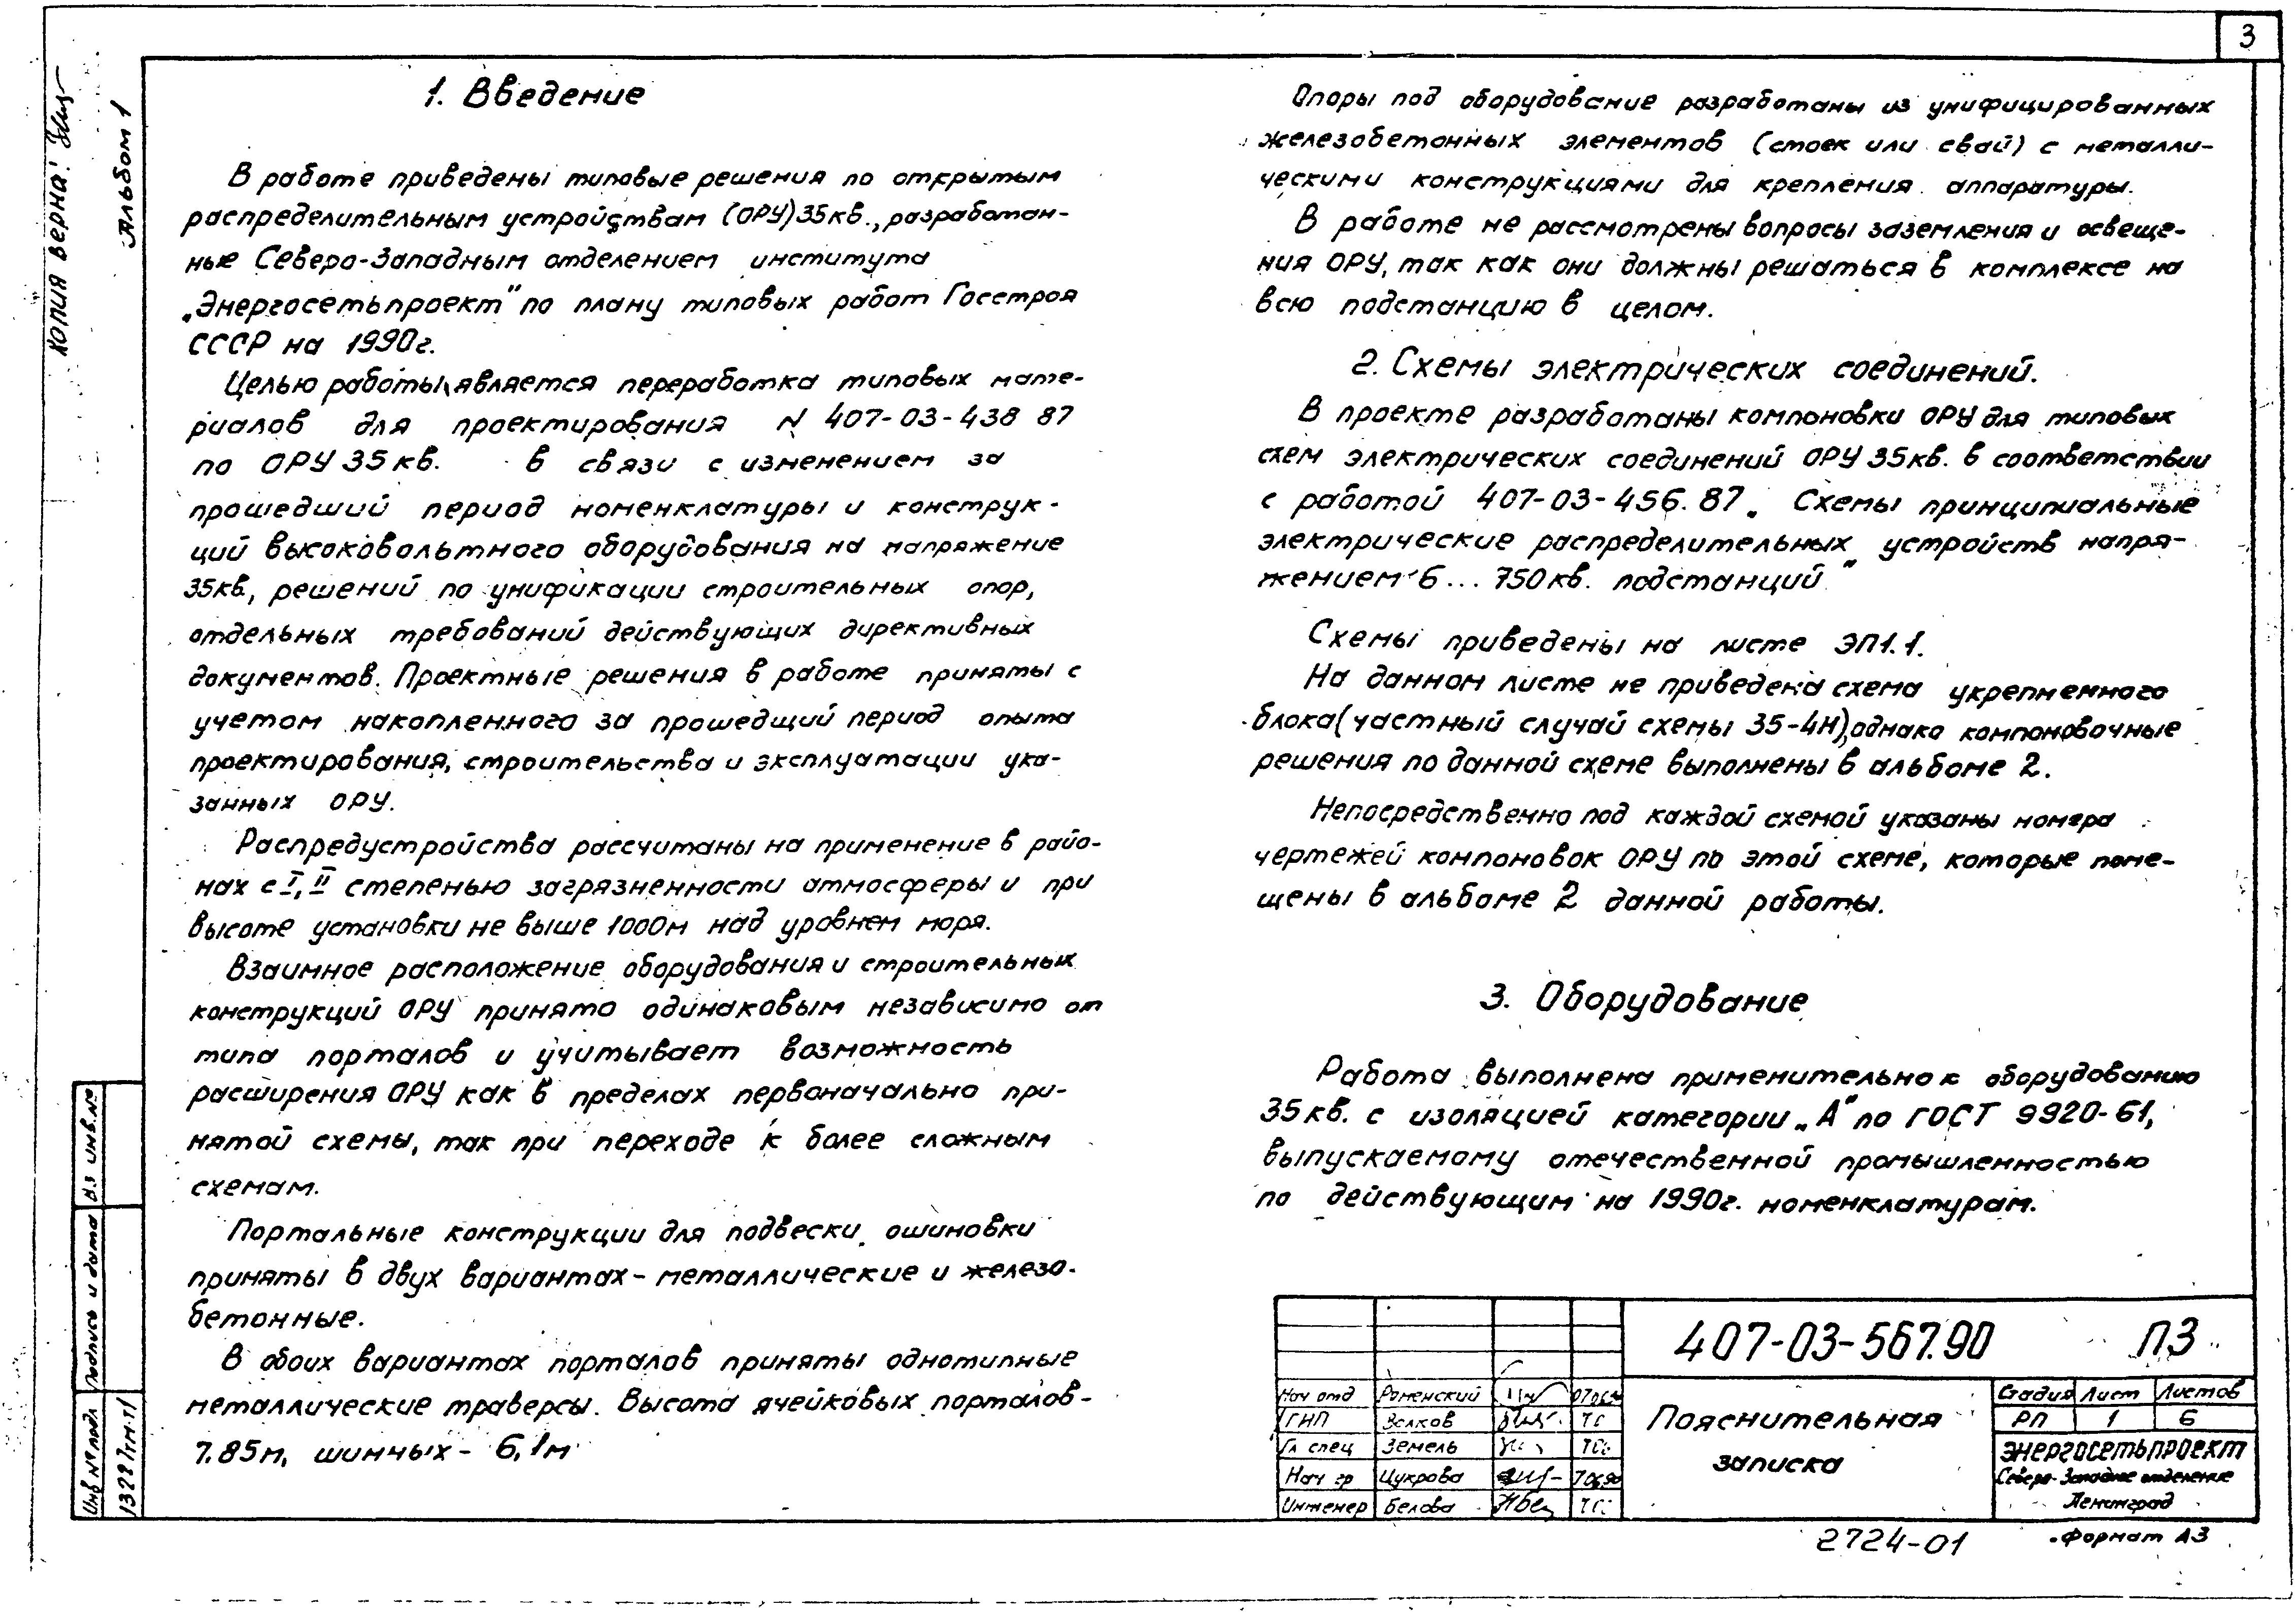 3
Копия верна:
Альбом 1
1. Введение
В работе приведены типовые решения по открытым
распределительным устройствам (ОРУ) 35кв., разработан-
ные Северо-Западным отделением института
„Энергосетьпроект" по плану типовых работ Госстроя
СССР на 1990г.
Целью работы является переработка типовых мате-
риалов для проектирования N 407-03-438 87
по ОРУ 35кв. в связи с изменением за
прошедший период номенклатуры и конструк-
ций высоковольтного оборудования на напряжение
35кв, решений по унификации строительных опор,
отдельных требований действующих директивных
документов. Проектные решения в работе приняты с
учетом накопленного за прошедщий период опыта
проектирования, строительства и эксплуатации ука-
занных ОРУ.
Распредустройства рассчитаны на применение в райо-
нах с I, II степенью загрязненности атмосферы и при
высоте установки не выше 1000м над уровнем моря.
Взаимное расположение оборудования и строительных
конструкций ОРУ принято одинаковым независимо от
типа порталов и учитывает возможность
расширения ОРУ как в пределах первоначально при-
нятой схемы, так при переходе к более сложным
схемам.
Портальные конструкции для подвески ошиновки
приняты в двух вариантах - металлические и железо-
бетонные.
В обоих вариантах порталов приняты однотипные
металлические траверсы. Высота ячейковых порталов-
7.85м, шинных - 6,1м
Опоры под оборудование разработаны из унифицированных
железобетонных элементов (стоек или свай) с металли-
ческими конструкциями для крепления аппаратуры.
В работе не рассмотрены вопросы заземления и освеще-
ния ОРУ, так как они должны решаться в комплексе на
всю подстанцию в целом.
2. Схемы электрических соединений.
В проекте разработаны компоновки ОРУ для типовых
схем электрических соединений ОРУ 35кв. в соответствии
с работой 407-03-456.87 „Схемы принципиальные
электрические распределительных устройств напря-
жением 6... 750кв. подстанций"
Схемы приведены на листе ЭП1.1.
На данном листе не приведена схема укрепненного
блока (частный случай схемы 35-4Н), однако компоновочные
решения по данной схеме выполнены в альбоме 2.
Непосредственно под каждой схемой указаны номера
чертежей компоновок ОРУ по этой схеме, которые поме-
щены в альбоме 2 данной работы.
3. Оборудование
Работа выполнена применительно к оборудованию
35кв. с изоляцией категории „А" по ГОСТ 9920-61,
выпускаемому отечественной промышленностью
по действующим на 1990г. номенклатурам.
407-03-567.90 ПЗ
Нач отд Роменский
ГИП Волков
Гл спец Земель
Нач гр Цукрова
Инженер Белова
Пояснительная
записка
Стадия Лист Листов
РП 1 6
Энергосетьпроект
Северо-Западное отделение
Ленинград
2724-01
Формат А3
Инв № подл Подпись и дата Вз инв.№
1322 8тм-т1